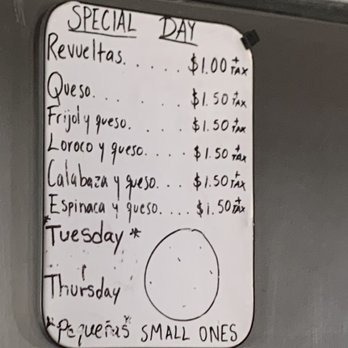 SPECIAL DAY
Revueltas. . . . . $1.00 + TAX
Queso. . . . . . $1.50 + TAX
Frijol y queso. . . . . $1.50 + TAX
Loroco y queso. . . . $1.50 + TAX
Calabaza y queso. . . $1.50 + TAX
Espinaca y queso. . . . $1.50 + TAX
*Tuesday*
Thursday
*Pequeñas SMALL ONES